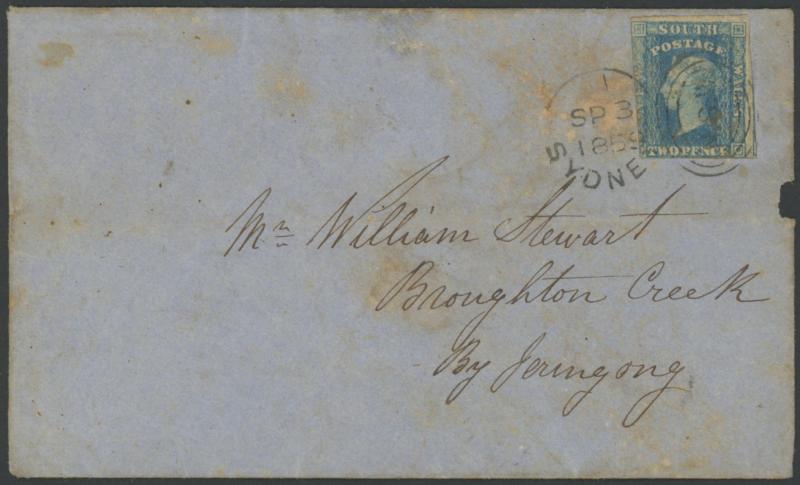 SOUTH
POSTAGE
WALES
TWO PENCE
1
SP 3
1859
SYDNEY
Mr William Stewart
Broughton Creek
By Jeringong